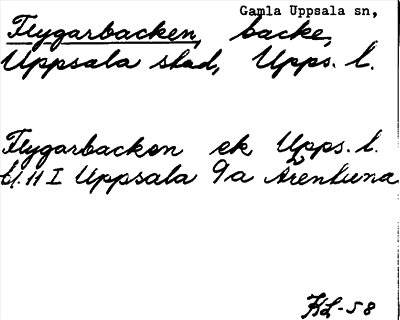 Gamla Uppsala sn,
Flygarbacken, backe,
Uppsala stad, Upps. l.
Flygarbacken ek Upps. l.
bl. 11 I Uppsala 9a Ärentuna
KL-58